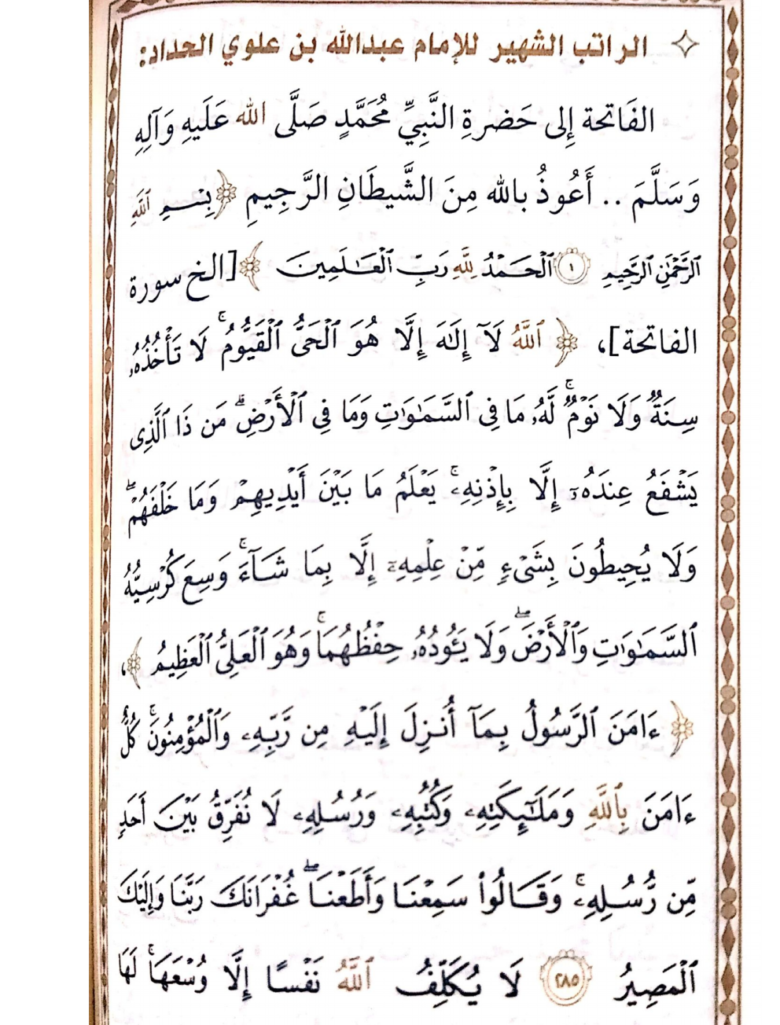 الراتب الشهير للإمام عبدالله بن علوي الحداد:
الفَاتحة إِلى حَضرةِ النَّبِيِّ مُحَمَّدٍ صَلَّى الله عَلَيهِ وَآلِهِ
وَسَلَّمَ .. أَعُوذُ بالله مِنَ الشَّيطَانِ الرَّجِيمِ ﴿بِسْمِ ٱللَّهِ
ٱلرَّحْمَٰنِ ٱلرَّحِيمِ ١ ٱلْحَمْدُ لِلَّهِ رَبِّ ٱلْعَٰلَمِينَ﴾ [الخ سورة
الفاتحة]، ﴿ٱللَّهُ لَآ إِلَٰهَ إِلَّا هُوَ ٱلْحَىُّ ٱلْقَيُّومُ ۚ لَا تَأْخُذُهُۥ
سِنَةٌ وَلَا نَوْمٌ ۚ لَّهُۥ مَا فِى ٱلسَّمَٰوَٰتِ وَمَا فِى ٱلْأَرْضِ ۗ مَن ذَا ٱلَّذِى
يَشْفَعُ عِندَهُۥٓ إِلَّا بِإِذْنِهِۦ ۚ يَعْلَمُ مَا بَيْنَ أَيْدِيهِمْ وَمَا خَلْفَهُمْ ۖ
وَلَا يُحِيطُونَ بِشَىْءٍ مِّنْ عِلْمِهِۦٓ إِلَّا بِمَا شَآءَ ۚ وَسِعَ كُرْسِيُّهُ
ٱلسَّمَٰوَٰتِ وَٱلْأَرْضَ ۖ وَلَا يَـُٔودُهُۥ حِفْظُهُمَا ۚ وَهُوَ ٱلْعَلِىُّ ٱلْعَظِيمُ﴾،
﴿ءَامَنَ ٱلرَّسُولُ بِمَآ أُنزِلَ إِلَيْهِ مِن رَّبِّهِۦ وَٱلْمُؤْمِنُونَ ۚ كُلٌّ
ءَامَنَ بِٱللَّهِ وَمَلَٰٓئِكَتِهِۦ وَكُتُبِهِۦ وَرُسُلِهِۦ لَا نُفَرِّقُ بَيْنَ أَحَدٍ
مِّن رُّسُلِهِۦ ۚ وَقَالُوا۟ سَمِعْنَا وَأَطَعْنَا ۖ غُفْرَانَكَ رَبَّنَا وَإِلَيْكَ
ٱلْمَصِيرُ ٢٨٥ لَا يُكَلِّفُ ٱللَّهُ نَفْسًا إِلَّا وُسْعَهَا ۚ لَهَا